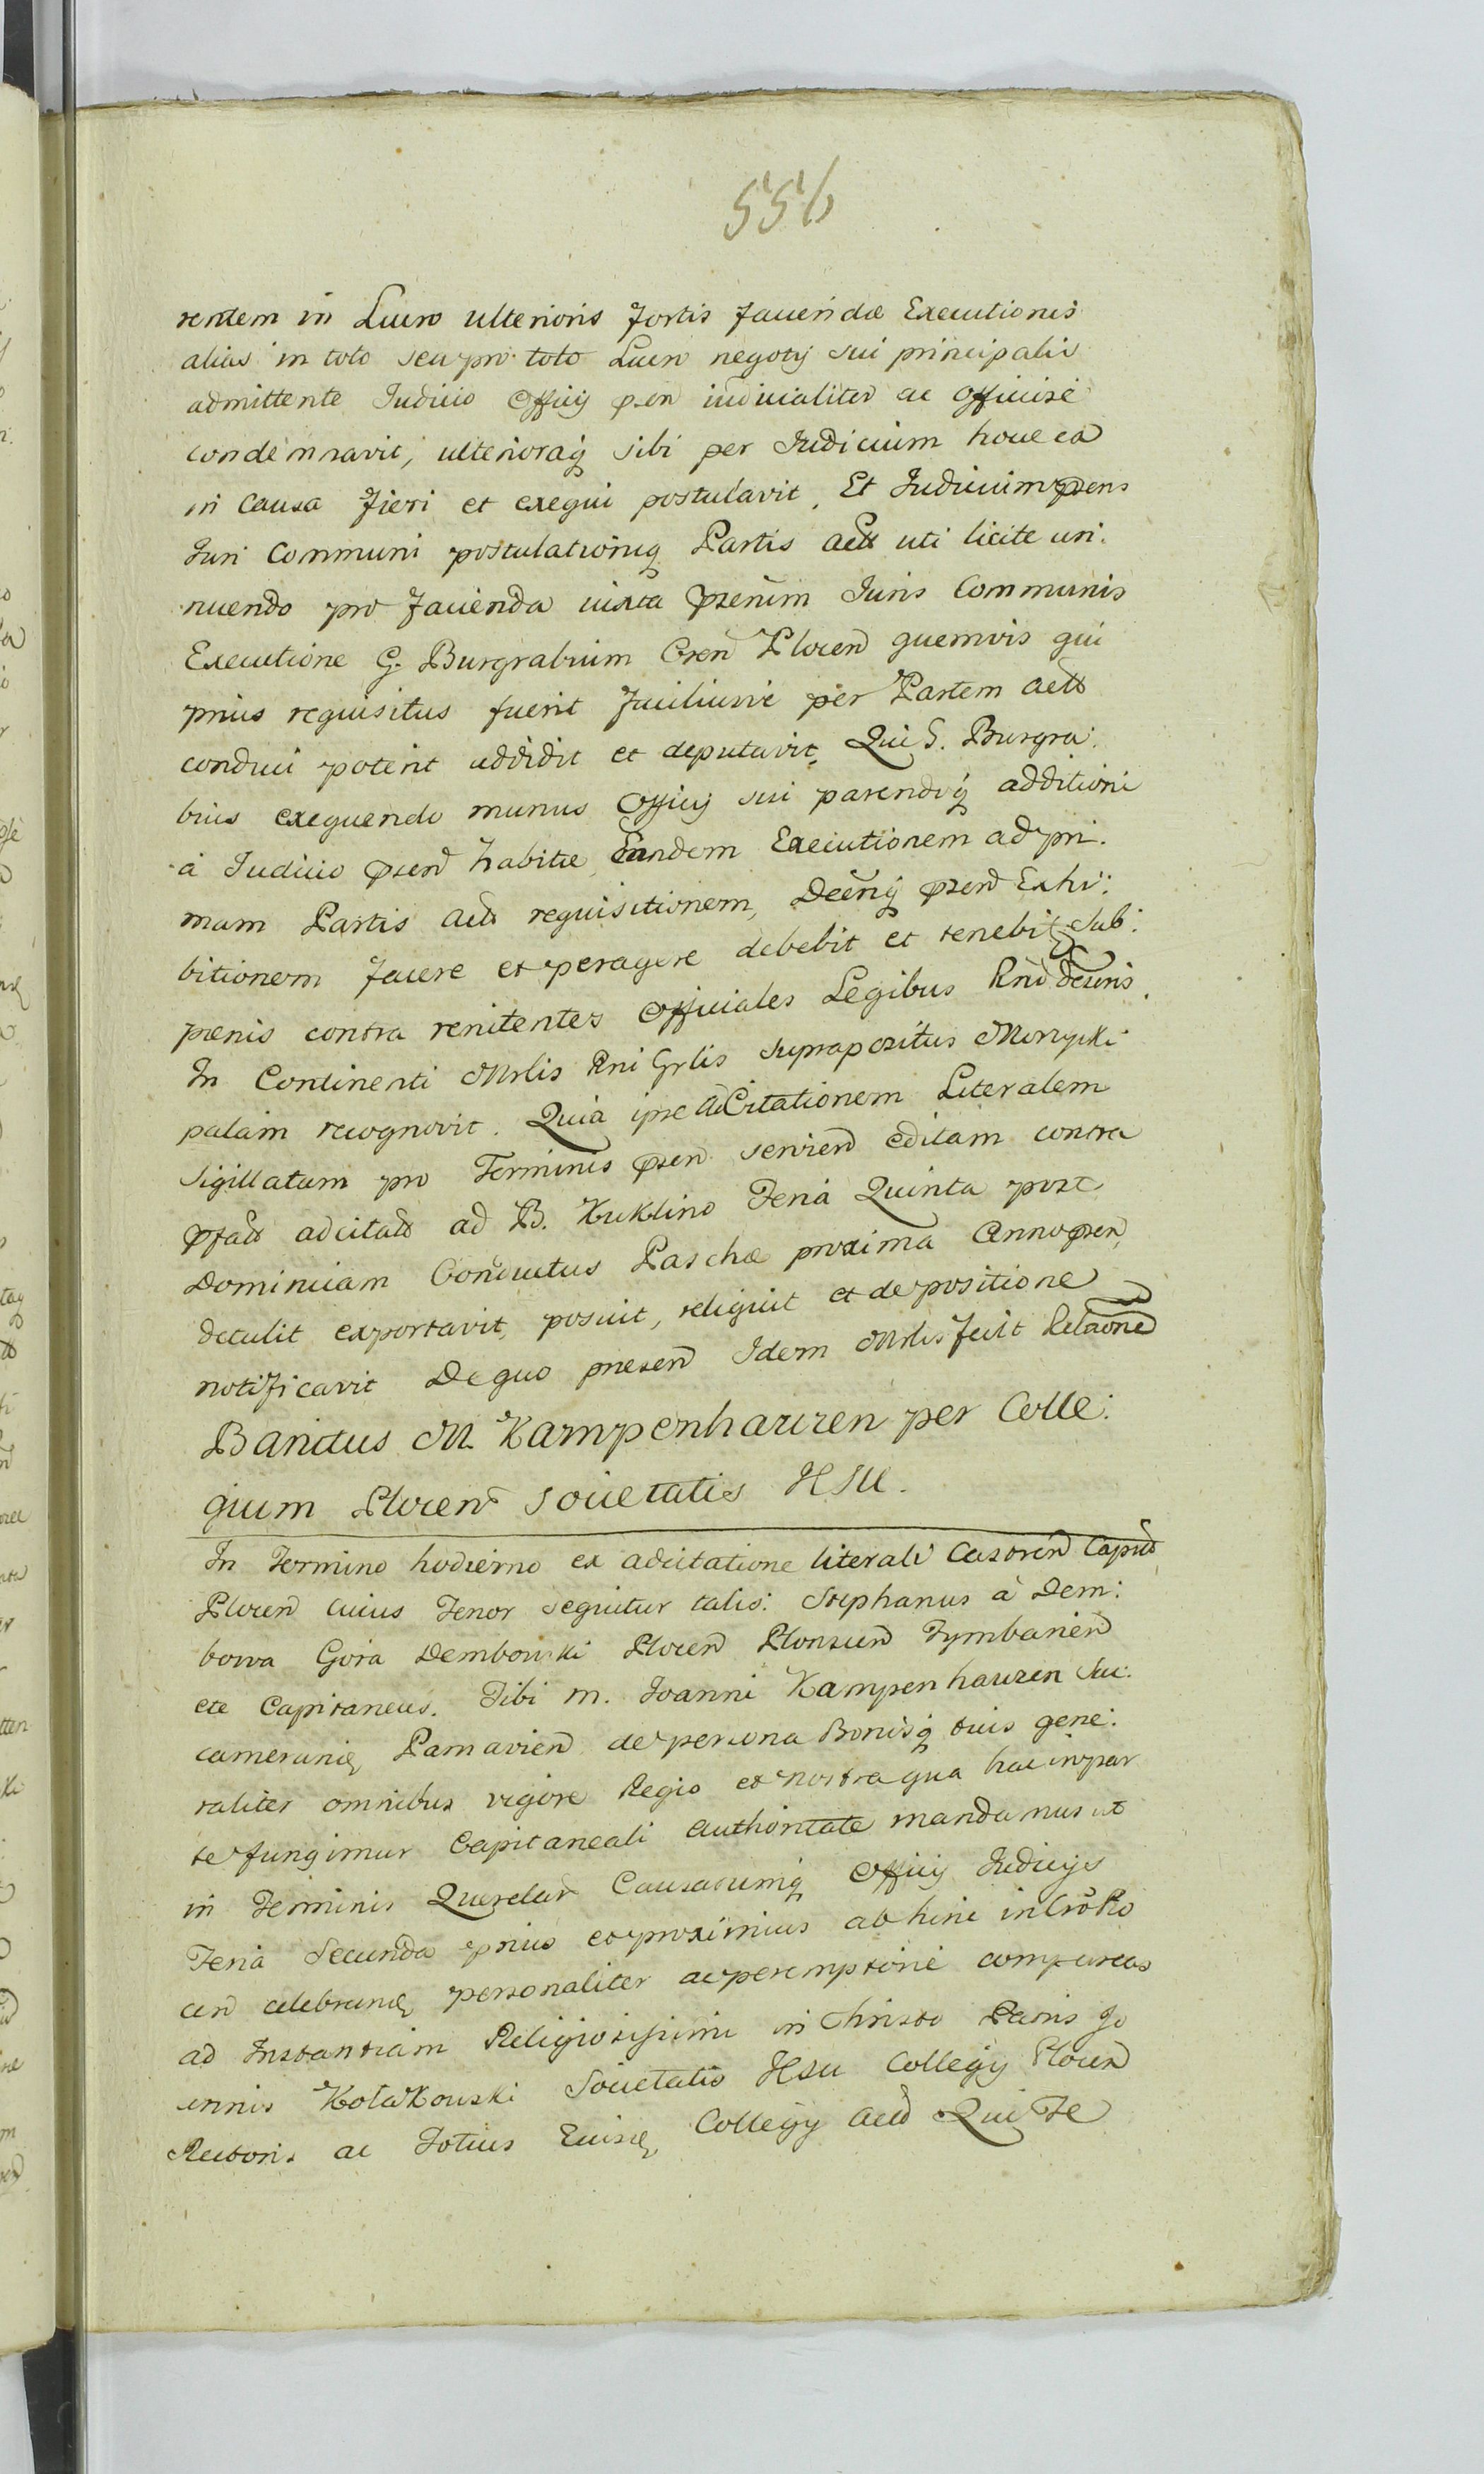 556
rentem in Lucro ulterioris fortis faciendæ Executionis
alias in toto seu pro toto Lucro negotij sui principalis
admittente Judicio Officij psen iudicialiter ac Officiose
condemnavit, ulterioraq sibi per Judicium hoc ea
in Causa fieri et exequi postulavit. Et Judicium psens
Juri Communi postulationiq Partis Act uti licite an:
nuendo pro facienda iuxta Juris Communis
Executione G. Burgrabium Cren Plocen quemvis qui
prius requisitus fuerit faciliusve per Partem Act
conduci poterit addidit et deputavit, Qui G. Burgra:
bius exequendo munus Officij sui parendoq additioni
à Judicio psen habitæ, Eandem Executionem ad pri:
mam Partis Act requisitionem, Decrenq psen Exhi:
bitionem facere et peragere debebit et tenebit Sub:
pœnis contra renitentes Officiales Legibus Rni descriis.
In Continenti Mrlis Rni Grlis suprapositus Morzycki
palam recognovit. Quia ipse AdCitationem Literalem
Sigillatam pro Terminis psen servien editam contra
pfatt adcitatt ad B. Kuklino Feria Quinta post
Dominicam Conductus Paschæ proxima Anno psen,
detulit exportavit, posuit, reliquit et de positione
notificavit De quo presen Idem Mrlis fecit Relaone
Banitus M. Kampenhauzen per Colle:
gium Plocen Societatis JESU.
In Termino hodierno ex adcitatione literali Castren Capitt
Plocen cuius Tenor sequitur talis: Stephanus à Dem:
bowa Gora Dembowski Plocen Plonscen Tymbarien
etc Capitaneus. Tibi M. Joanni Kampenhauzen Suc:
camerario Parnavien de persona Bonisq tuis gene:
raliter omnibus vigore Regia et nostra qua hac in par
te fungimur Capitaneali authoritate mandamus ut
in Terminis Querelar Causarumq Officij Judicijs
Feria Secunda prius et proximius ab hinc in Cro Plo
cen celebran personaliter ac peremptorie compareas
ad Instantiam Religiosissimi in Christo Patris Jo
annis Kołakowski Societatis JESU Collegij Plocen
Rectoris ac Totius Eiusd Collegij Act Qui Te